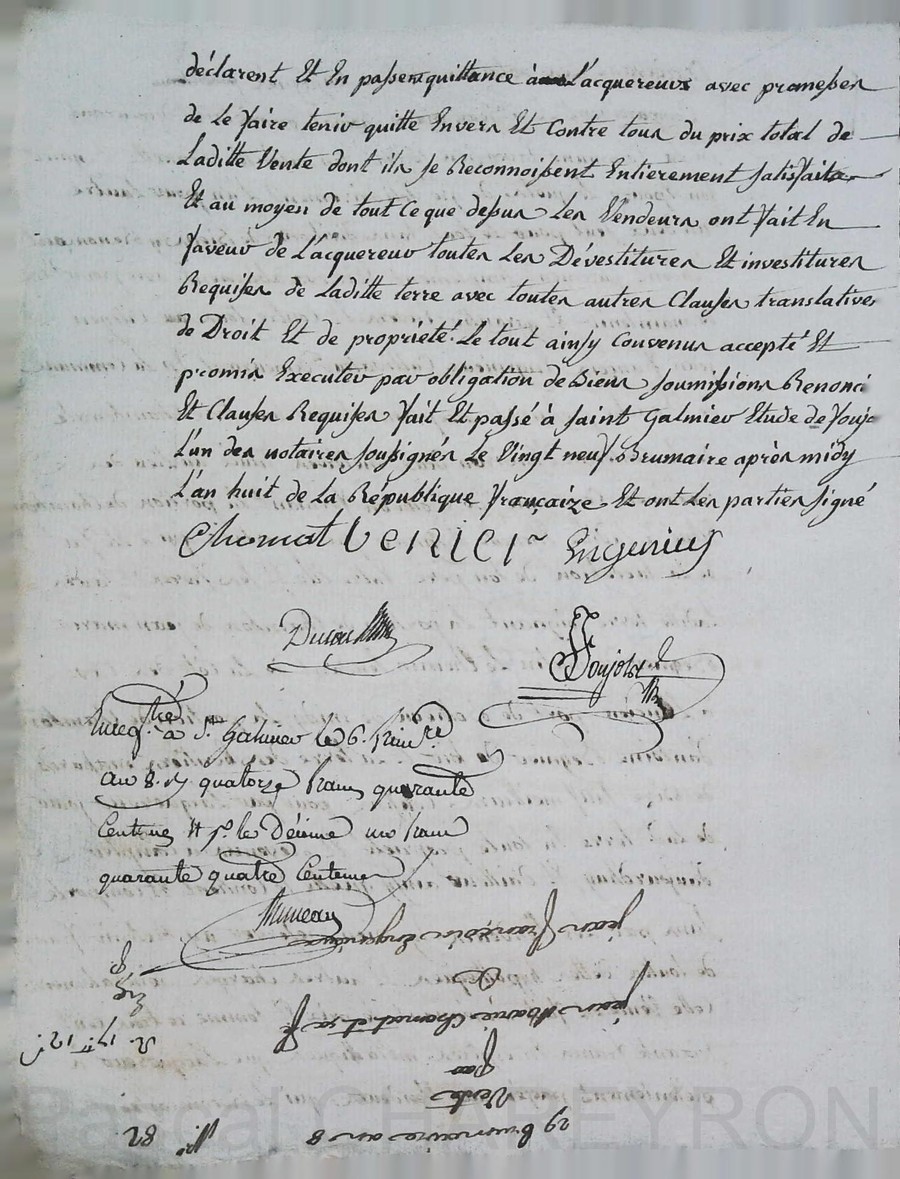 déclarent Et En passent quittance à L'acquereur avec promesses
de le faire tenir quitte Envers Et Contre tous du prix total de
Laditte Vente dont ils se Reconnoissent Entierement satisfaits
Et au moyen de tout Ce que dessus Les Vendeurs ont fait En
faveur de L'acquereur toutes Les Dévestitures Et investitures
Requises de Laditte terre avec toutes autres Clauses translatives
de Droit Et de propriété. Le tout ainsy Convenus accepté Et
promis Executer par obligation de Biens soumissions Renonci
Et Clauses Requises fait Et passé à saint Galmier Etude de
L'un des notaires soussignés Le Vingt neuf Brumaire après midy
L'an huit de La République françaize Et ont Les parties signé
Chomat Verrier Enjenius
à St Galmier le 6. frimre
an 8. quatorze francs quarante
Centimes Et pr le Décime un franc
quarante quatre Centimes
jean françois
&
jean Marie Chomat et sa f
Par
Vente
29 brumaire an 8 82
Pascal CHAREYRON